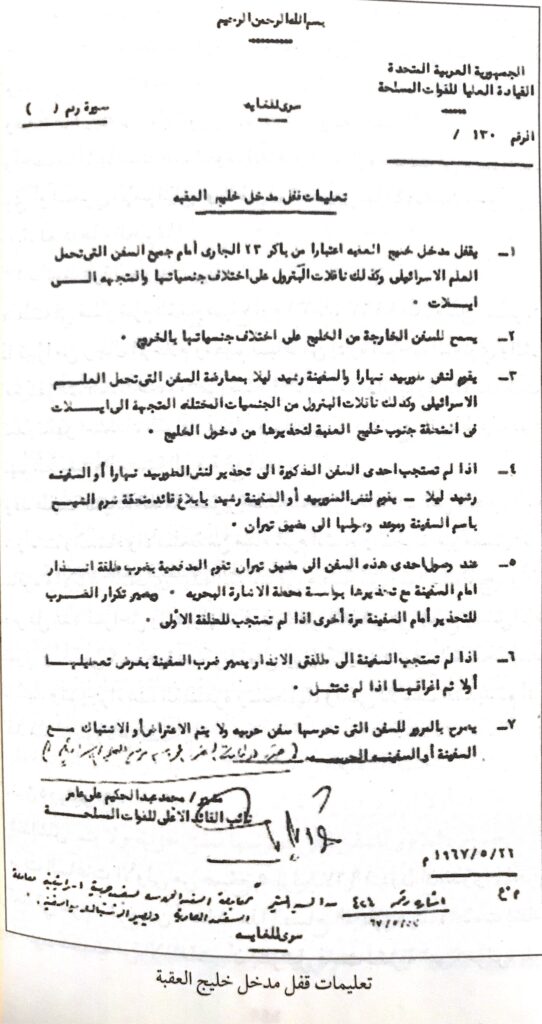 بسم الله الرحمن الرحيم
الجمهورية العربية المتحدة
القيادة العليا للقوات المسلحة
سرى للغاية
صورة رقم ( )
الرقم ١٣٠ /
تعليمات قفل مدخل خليج العقبه
١ـ يقفل مدخل خليج العقبه اعتبارا من باكر ٢٣ الجارى أمام جميع السفن التى تحمل
العلم الاسرائيلى وكذلك ناقلات البترول على اختلاف جنسياتها والمتجهة الى
ايلات ٠
٢ـ يسمح للسفن الخارجة من الخليج على اختلاف جنسياتها بالخروج ٠
٣ـ يقوم لنش طوربيد نهارا والسفينة رشيد ليلا بمعارضة السفن التى تحمل العلم
الاسرائيلى وكذلك ناقلات البترول من الجنسيات المختلفه المتجهة الى ايلات
فى المنطقة جنوب خليج العقبة لتحذيرها من دخول الخليج ٠
٤ـ اذا لم تستجب احدى السفن المذكورة الى تحذير لنش الطوربيد نهارا أو السفينه
رشيد ليلا – يقوم لنش الطوربيد أو السفينة رشيد بابلاغ قائد منطقة شرم الشيخ
باسم السفينة وموعد وصولها الى مضيق تيران ٠
٥ـ عند وصول احدى هذه السفن الى مضيق تيران تقوم المدفعية بضرب طلقة انذار
امام السفينة مع تحذيرها بواسطة محطة الاشارة البحريه ٠ ويصير تكرار الضرب
للتحذير أمام السفينة مرة أخرى اذا لم تستجب للطلقة الأولى ٠
٦ـ اذا لم تستجب السفينة إلى طلقتى الانذار يصير ضرب السفينة بغرض تعطيلها
أولا ثم اغراقها اذا لم تمتثل ٠
٧ـ يصرح بالمرور للسفن التى تحرسها سفن حربيه ولا يتم الاعتراض أو الاشتباك مع
السفينة أو السفينه الحربيه
مشير / محمد عبد الحكيم على عامر
نائب القائد الأعلى للقوات المسلحة
١٩٦٧/٥/٢٢ م
سرى للغايه
تعليمات قفل مدخل خليج العقبة